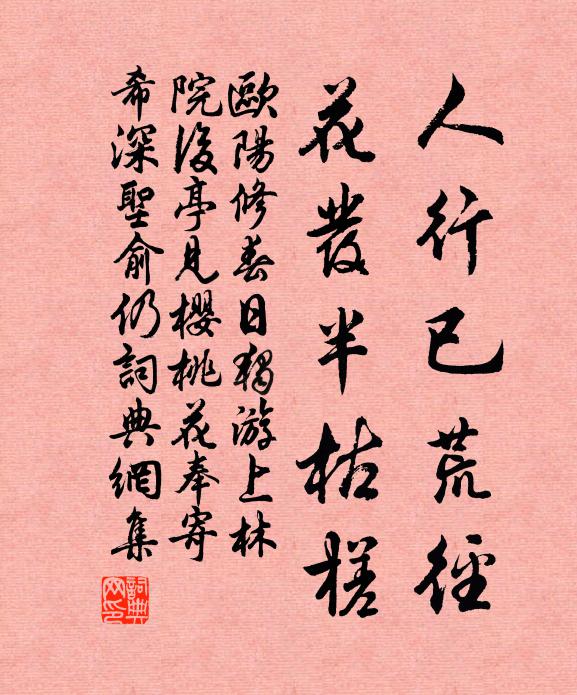 人行已荒徑
花發半枯槎
歐陽修春日獨游上林
院後亭見櫻桃花奉寄
希深聖俞仍詞典網集
詞典網印